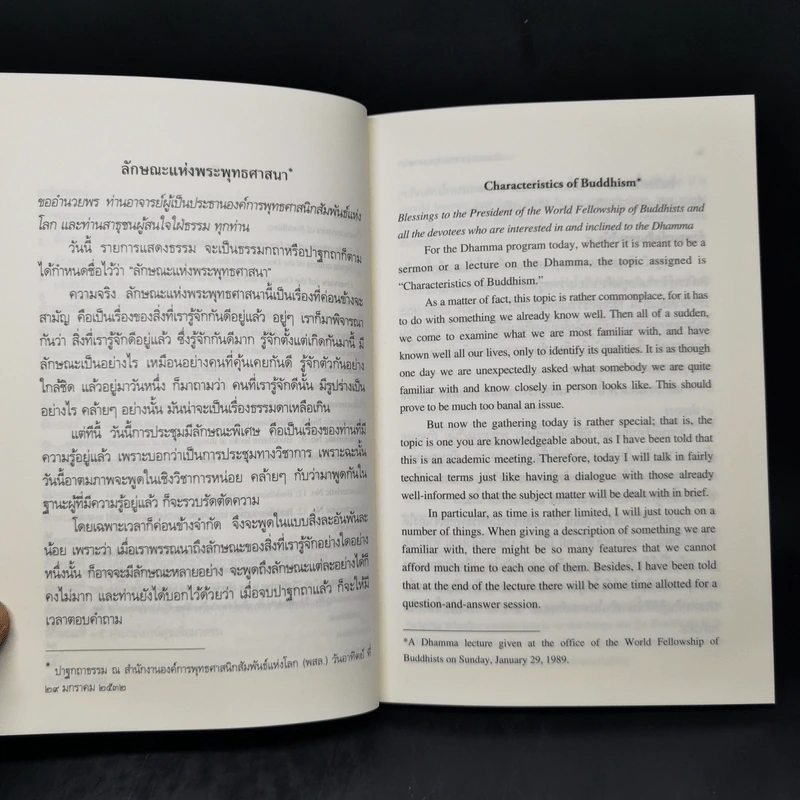 ลักษณะแห่งพระพุทธศาสนา*
ขออำนวยพร ท่านอาจารย์ผู้เป็นประธานองค์การพุทธศาสนิกสัมพันธ์แห่ง
โลก และท่านสาธุชนผู้สนใจใฝ่ธรรม ทุกท่าน
วันนี้ รายการแสดงธรรม จะเป็นธรรมกถาหรือปาฐกถาก็ตาม
ได้กำหนดชื่อไว้ว่า “ลักษณะแห่งพระพุทธศาสนา”
ความจริง ลักษณะแห่งพระพุทธศาสนานี้เป็นเรื่องที่ค่อนข้างจะ
สามัญ คือเป็นเรื่องของสิ่งที่เรารู้จักกันดีอยู่แล้ว อยู่ๆ เราก็มาพิจารณา
กันว่า สิ่งที่เรารู้จักดีอยู่แล้ว ซึ่งรู้จักกันดีมาก รู้จักตั้งแต่เกิดกันมานี้ มี
ลักษณะเป็นอย่างไร เหมือนอย่างคนที่คุ้นเคยกันดี รู้จักตัวกันอย่าง
ใกล้ชิด แล้วอยู่มาวันหนึ่ง ก็มาถามว่า คนที่เรารู้จักดีนั้น มีรูปร่างเป็น
อย่างไร คล้ายๆ อย่างนั้น มันน่าจะเป็นเรื่องธรรมดาเหลือเกิน
แต่ทีนี้ วันนี้การประชุมมีลักษณะพิเศษ คือเป็นเรื่องของท่านที่มี
ความรู้อยู่แล้ว เพราะบอกว่าเป็นการประชุมทางวิชาการ เพราะฉะนั้น
วันนี้อาตมภาพจะพูดในเชิงวิชาการหน่อย คล้ายๆ กับว่ามาพูดกันใน
ฐานะผู้ที่มีความรู้อยู่แล้ว ก็จะรวบรัดตัดความ
โดยเฉพาะเวลาก็ค่อนข้างจำกัด จึงจะพูดในแบบสิ่งละอันพันละ
น้อย เพราะว่า เมื่อเราพรรณนาถึงลักษณะของสิ่งที่เรารู้จักอย่างใดอย่าง
หนึ่งนั้น ก็อาจจะมีลักษณะหลายอย่าง จะพูดถึงลักษณะแต่ละอย่างได้ก็
คงไม่มาก และท่านยังได้บอกไว้ด้วยว่า เมื่อจบปาฐกถาแล้ว ก็จะให้มี
เวลาตอบคำถาม
* ปาฐกถาธรรม ณ สำนักงานองค์การพุทธศาสนิกสัมพันธ์แห่งโลก (พสล.) วันอาทิตย์ ที่
๒๙ มกราคม ๒๕๓๒
Characteristics of Buddhism*
Blessings to the President of the World Fellowship of Buddhists and
all the devotees who are interested in and inclined to the Dhamma
For the Dhamma program today, whether it is meant to be a
sermon or a lecture on the Dhamma, the topic assigned is
“Characteristics of Buddhism.”
As a matter of fact, this topic is rather commonplace, for it has
to do with something we already know well. Then all of a sudden,
we come to examine what we are most familiar with, and have
known well all our lives, only to identify its qualities. It is as though
one day we are unexpectedly asked what somebody we are quite
familiar with and know closely in person looks like. This should
prove to be much too banal an issue.
But now the gathering today is rather special; that is, the
topic is one you are knowledgeable about, as I have been told that
this is an academic meeting. Therefore, today I will talk in fairly
technical terms just like having a dialogue with those already
well-informed so that the subject matter will be dealt with in brief.
In particular, as time is rather limited, I will just touch on a
number of things. When giving a description of something we are
familiar with, there might be so many features that we cannot
afford much time to each one of them. Besides, I have been told
that at the end of the lecture there will be some time allotted for a
question-and-answer session.
*A Dhamma lecture given at the office of the World Fellowship of
Buddhists on Sunday, January 29, 1989.